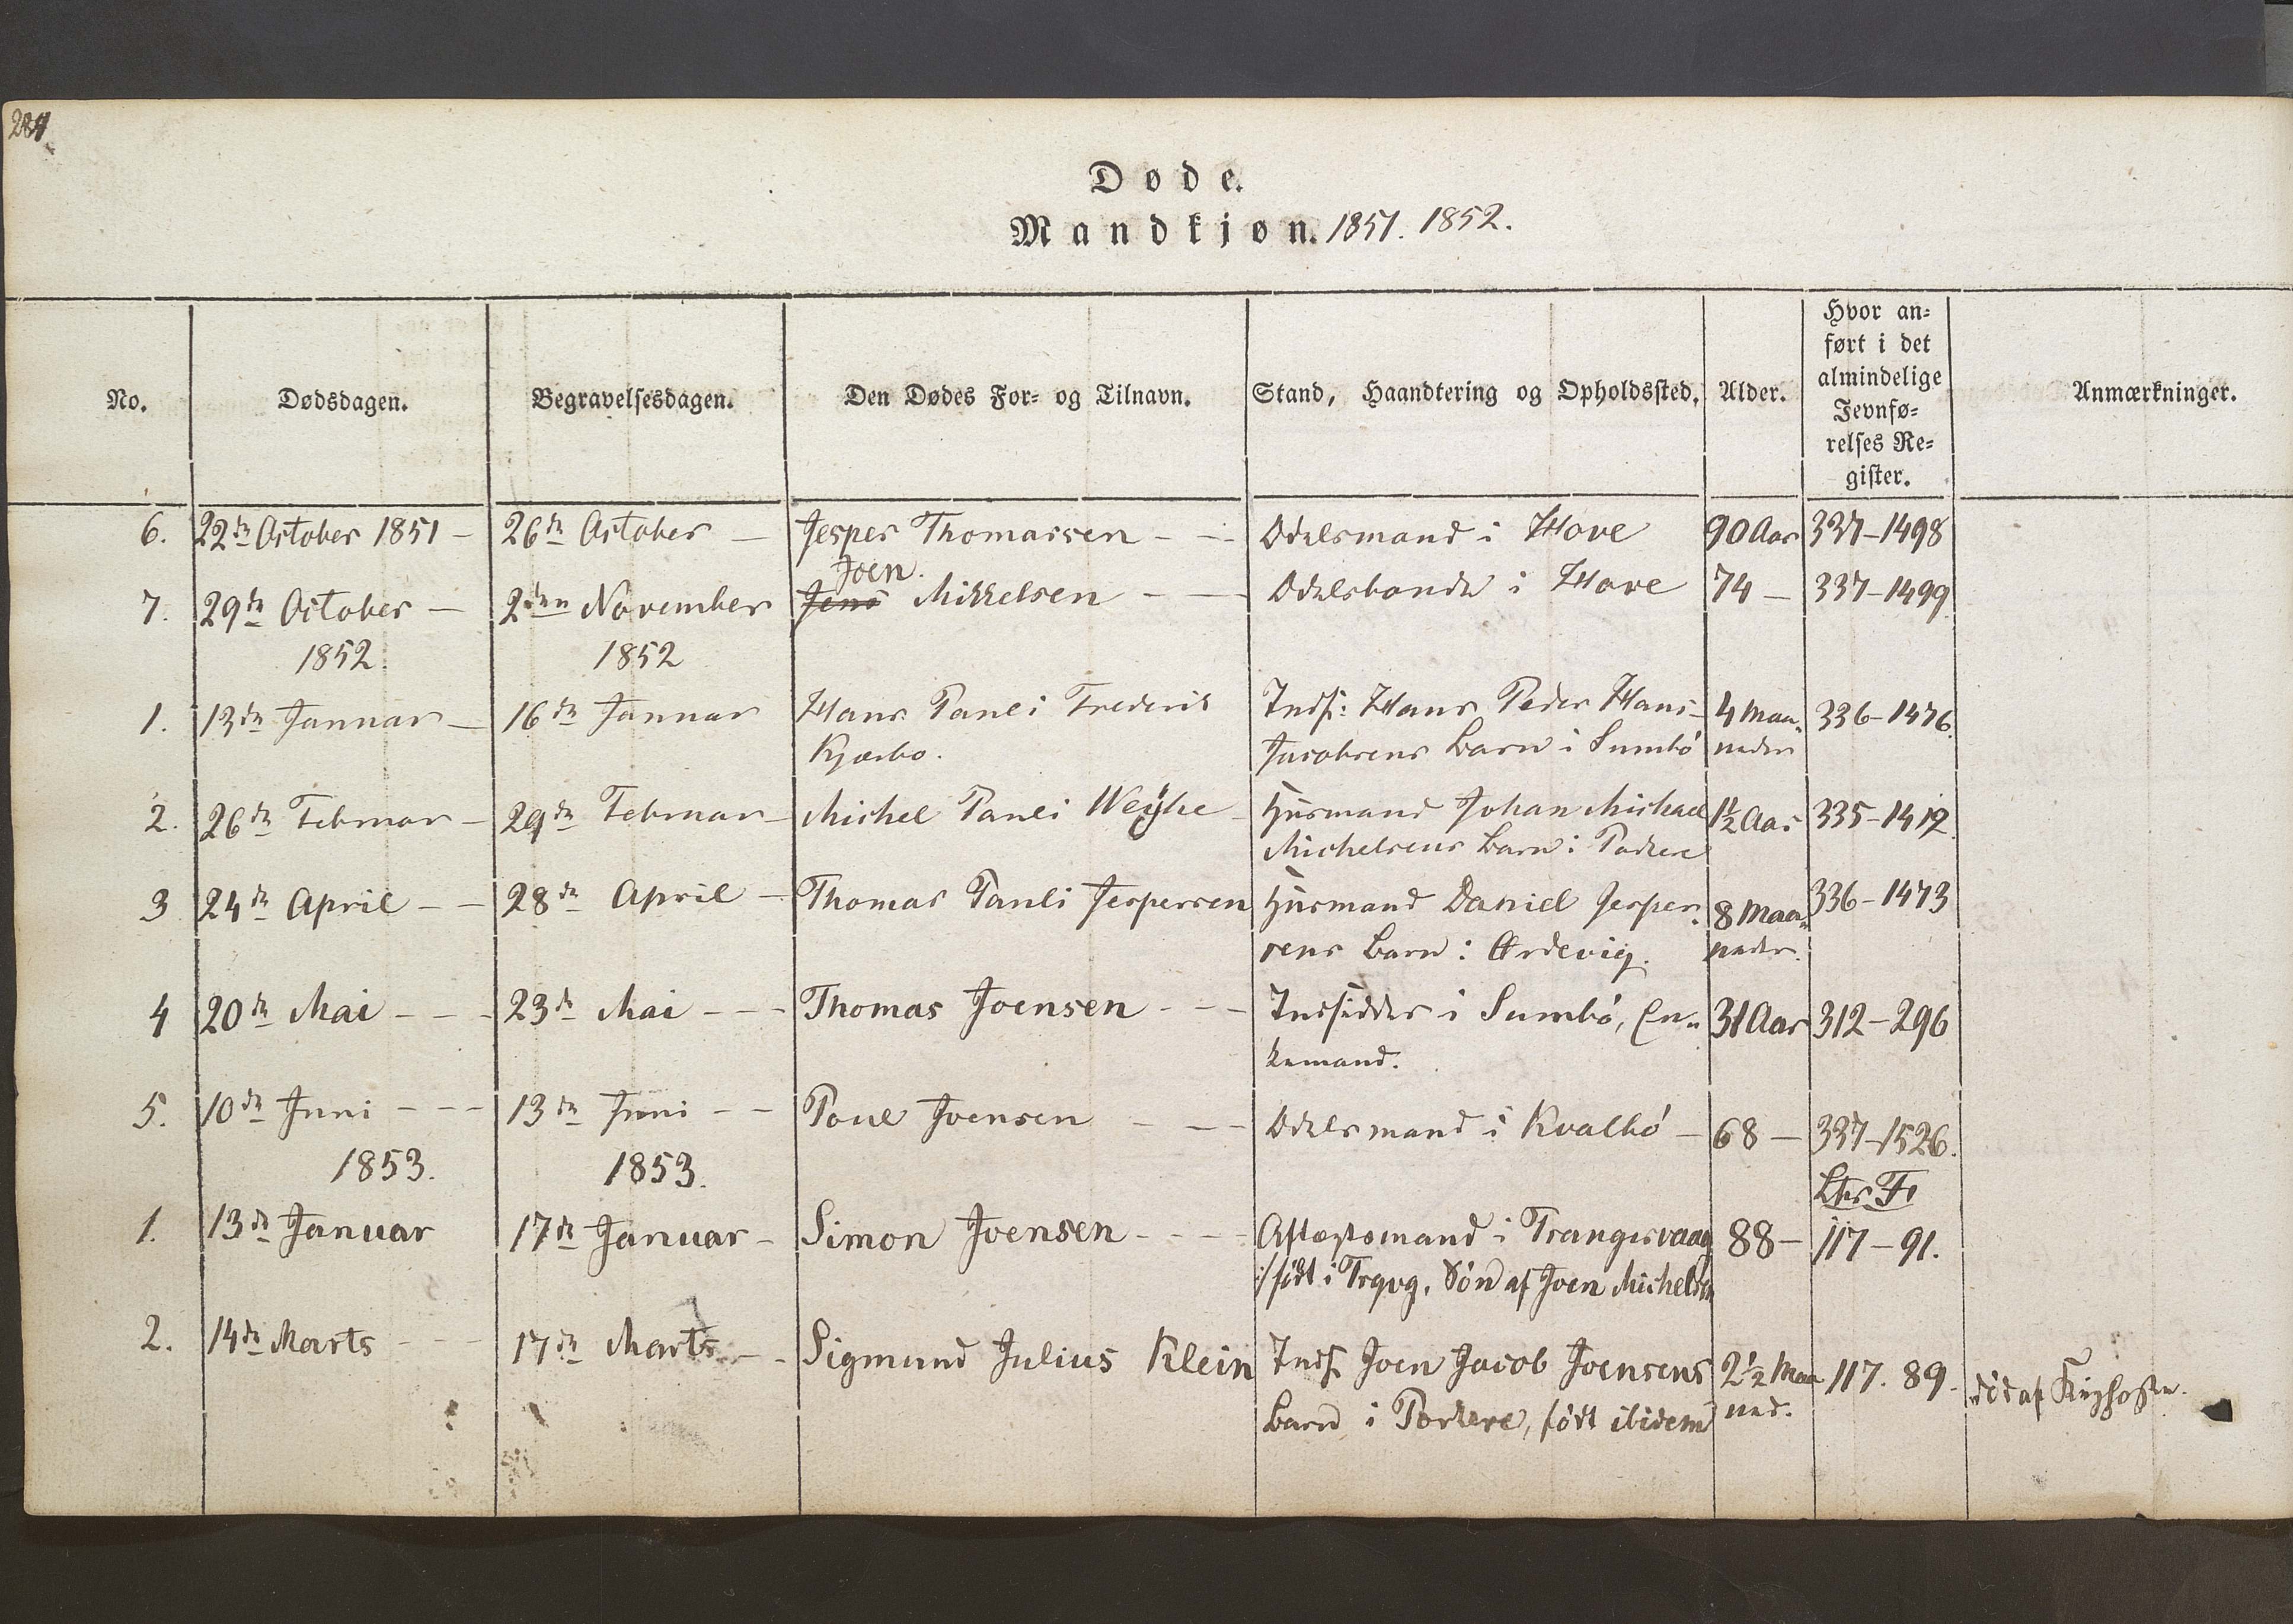 284
Døde.
Mandkjøn. 1851. 1852.
No. Dødsdagen. Begravelsesdagen. Den Dødes For- og Tilnavn. Stand, Haandtering og Opholdssted. Alder. Hvor an-
ført i det
almindelige
Jevnfø-
relses Re-
gister. Anmærkninger.
6. 22de October 1851 - 26de October - Jesper Thomassen - - Odelsmand i Hove 90 Aar 337-1498
Joen.
7. 29de October - 2den November Jens Mikkelsen - - Odelsbonde i Hove 74 - 337-1499
1852. 1852
1. 13de Januar - 16de Januar Hans Pauli Frederik Indsr: Hans Peder Hans- 4 Maa- 336-1476.
Kjærbo. Jacobsens Barn i Sumbø neder
2. 26de Februar - 29de Februar - Michel Pauli Weyhe - Huusmand Johan Michael 1½ Aar 335-1412.
Michelsens Barn i Porkere
3 24de April - - 28de April - Thomas Pauli Jespersen Huusmand Daniel Jesper- 8 Maa- 336-1473
sens Barn i Ørdevig. neder.
4 20de Mai - - - 23de Mai - - - Thomas Joensen - - - Indsidder i Sumbø, En- 31 Aar 312-296
kemand.
5. 10de Juni - - - 13de Juni - - Poul Joensen - - - Odelsmand i Kvalbø - 68 - 337-1526.
1853. 1853. Ltr F.
1. 13de Januar 17de Januar - Simon Joensen - - - - Aftægtsmand i Trangisvaag 88 - 117-91.
:/ født i Trgvg. Søn af Joen Michelsen
2. 14de Marts - - - 17de Marts - - Sigmund Julius Klein Inds. Joen Jacob Joensens 2½ Maa 117. 89. død af Kighoste.
Barn i Porkere, født ibidem ned.